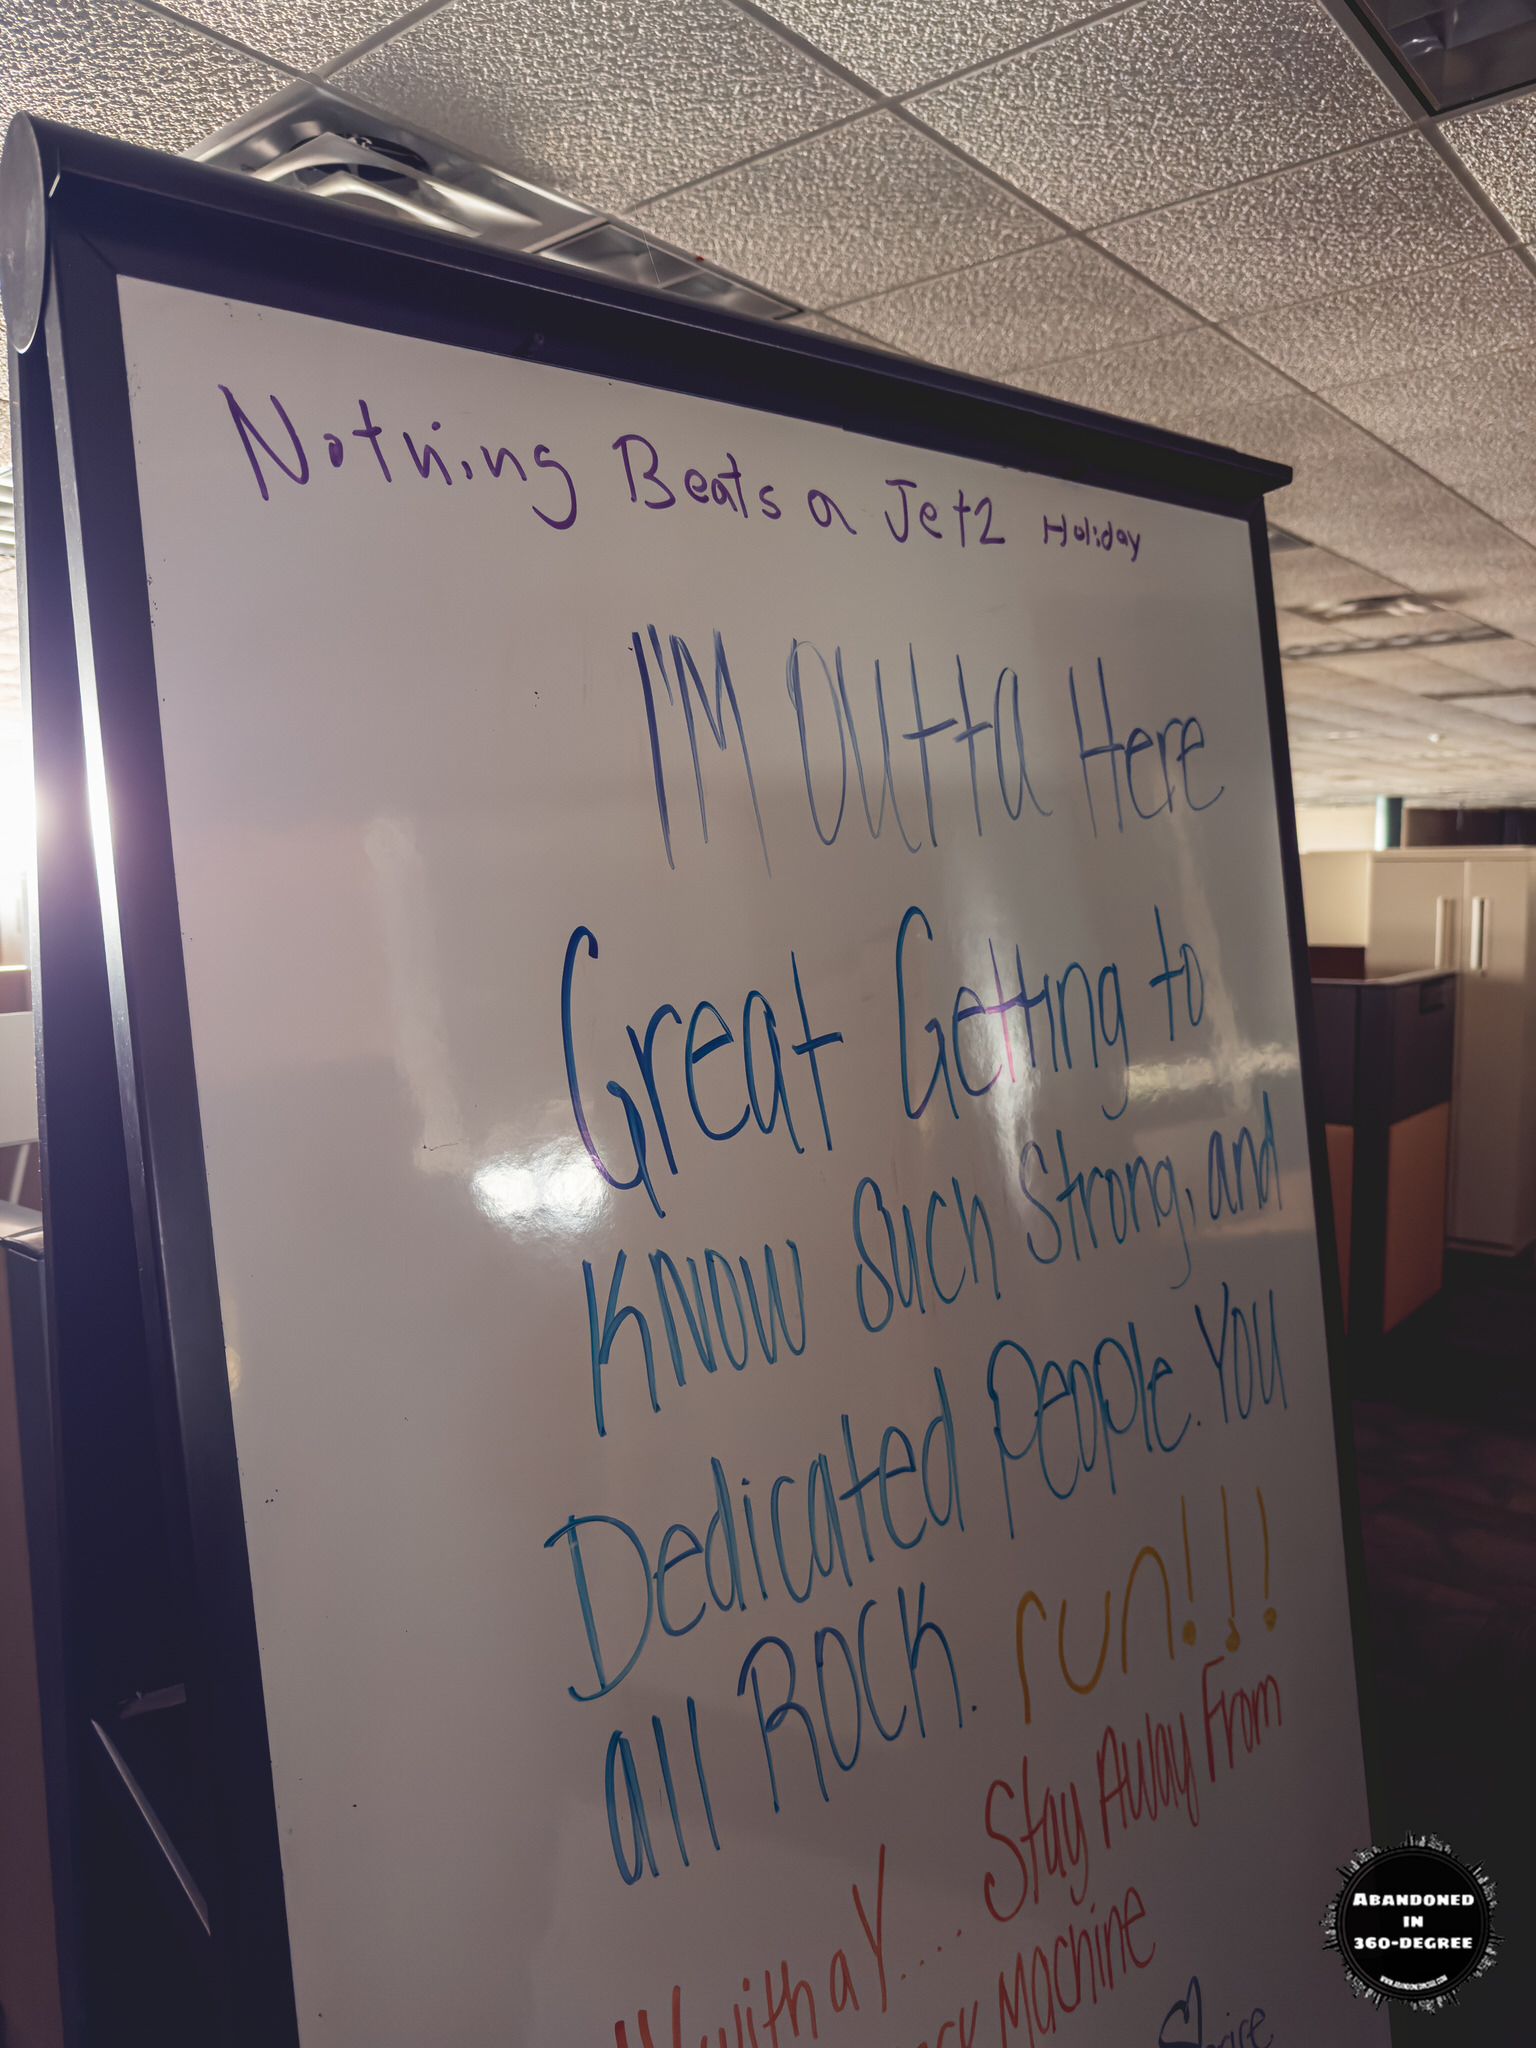 Nothing Beats a Jet2 Holiday
I'M OUtta Here
Great Getting to
KNOW Such Strong, and
Dedicated People. YOU
all ROCK. run!!!
with a Y.... Stay Away From
Machine
ABANDONED
IN
360-DEGREE